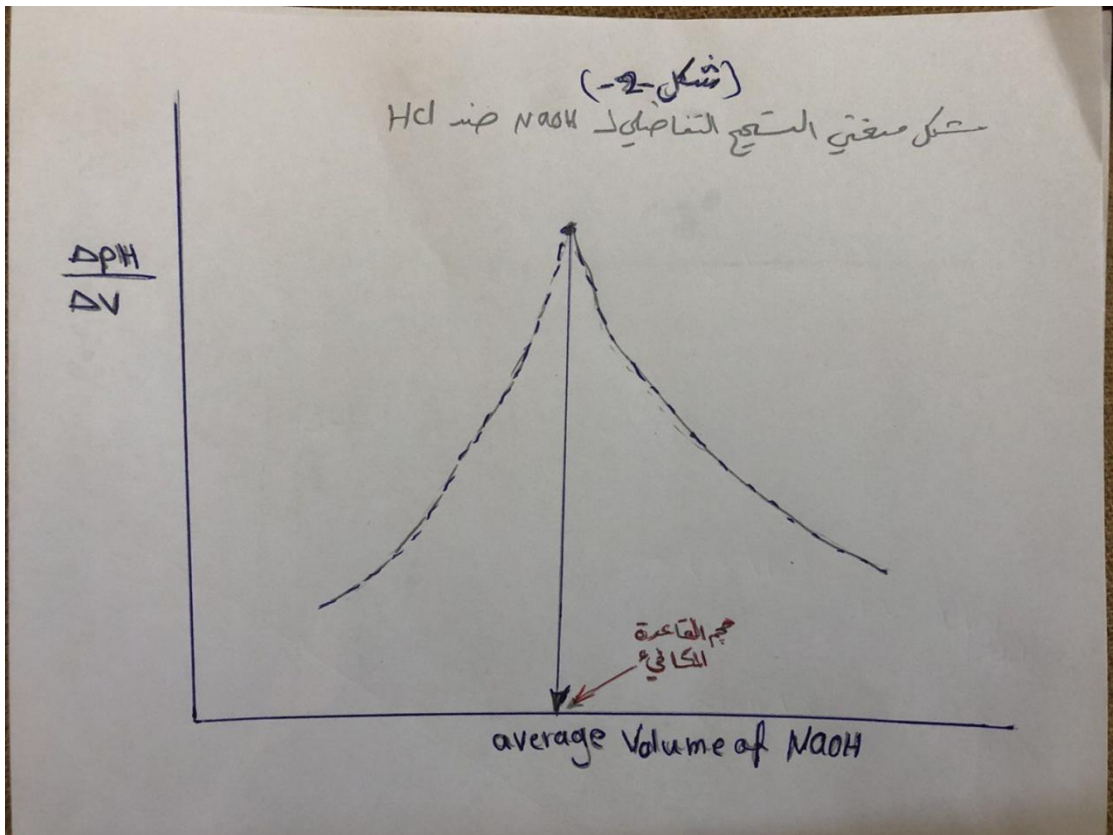 (شكل -2-)
شكل منحني التسحيح التفاضلي لـ NaOH ضد HCl
ΔpH
ΔV
حجم القاعدة
المكافيء
average Volume of NaOH